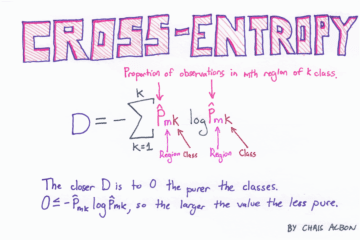 CROSS-ENTROPY
Proportion of observations in mth region of k class.
D = - K∑k=1 P̂mk log P̂mk
Region Class Region Class
The closer D is to 0 the purer the classes.
0 ≤ -P̂mk log P̂mk, so the larger the value the less pure.
BY CHRIS ALBON